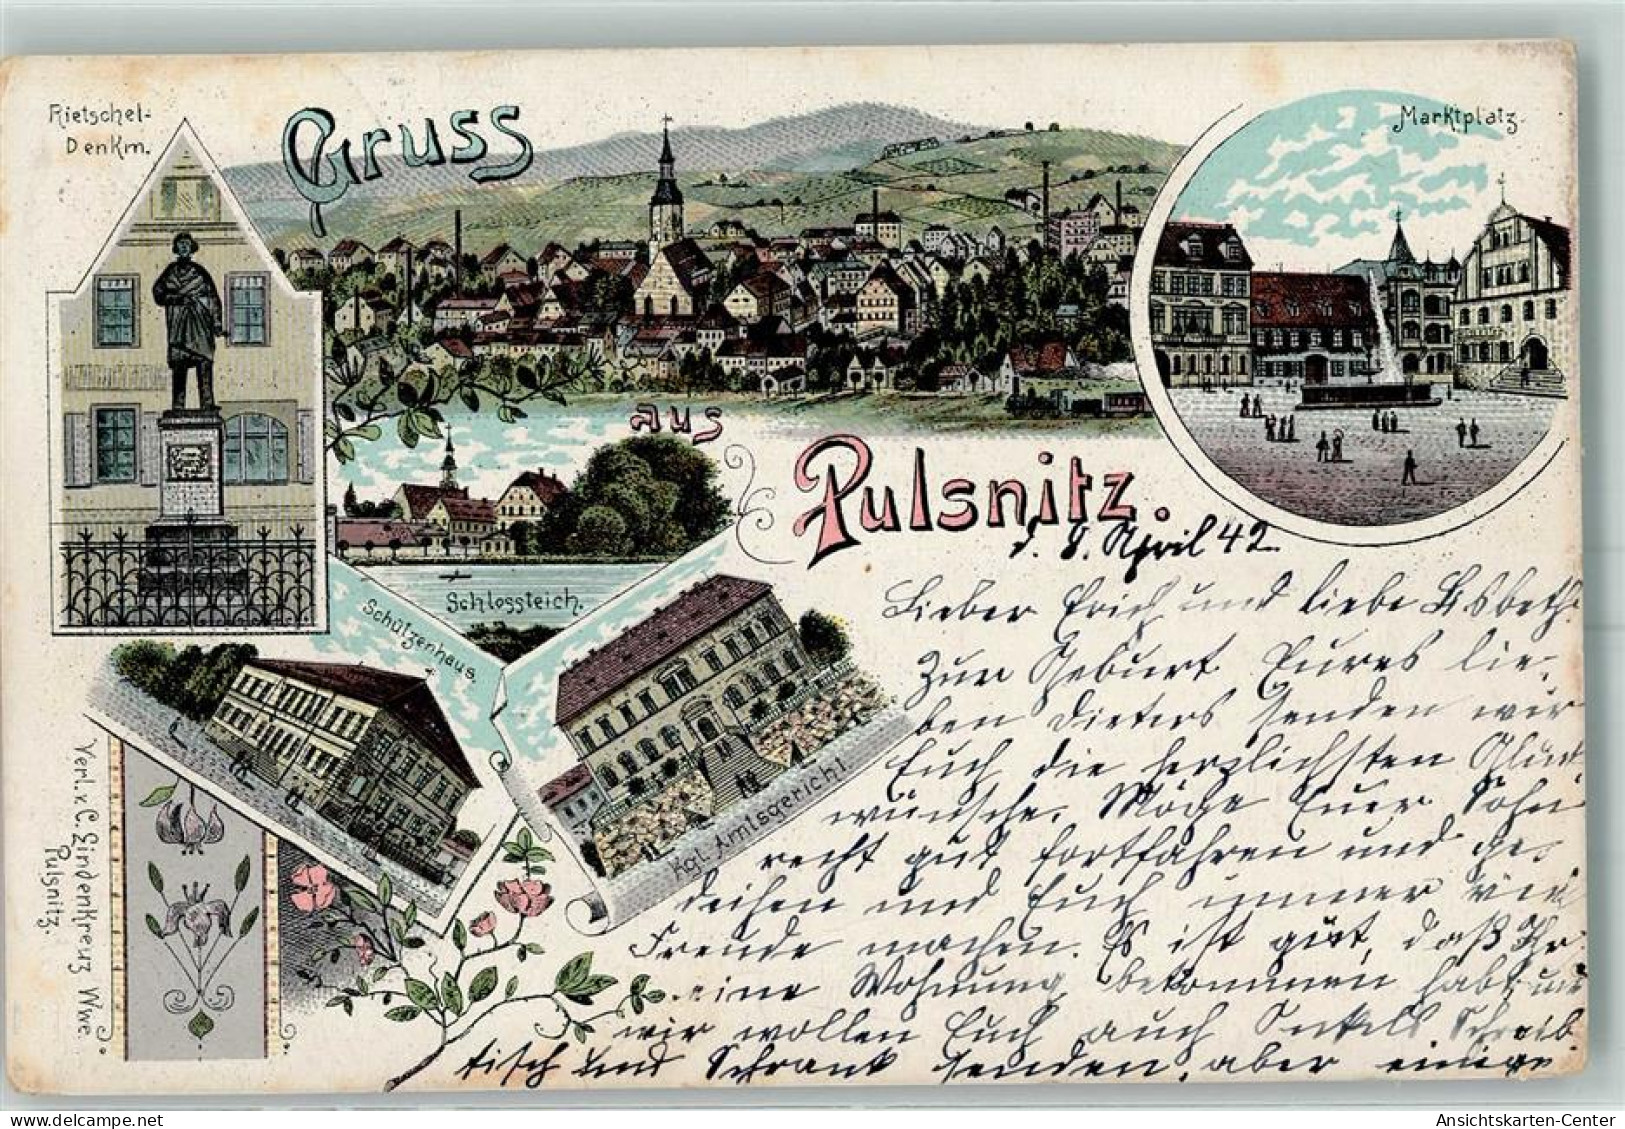 Rietschel-
Denkm.
Gruss
aus
Pulsnitz.
Marktplatz.
Schlossteich.
Schützenhaus.
Kgl. Amtsgericht.
Verl. v. C. Lindenkreuz Wwe.
Pulsnitz.
d. 8. April 42
Lieber Erich und liebe Lisbeth.
Zur Geburt Eures lie-
ben Dieters senden wir
Euch die herzlichsten Glück
wünsche. Möge Euer Sohn
recht gut fortfahren und ge-
deihen und Euch immer viel
Freude machen. Es ist gut, daß Ihr
eine Wohnung bekommen habt, und
wir wollen Euch auch Schreib-
tisch und Schrank senden, aber einige
Ansichtskarten-Center